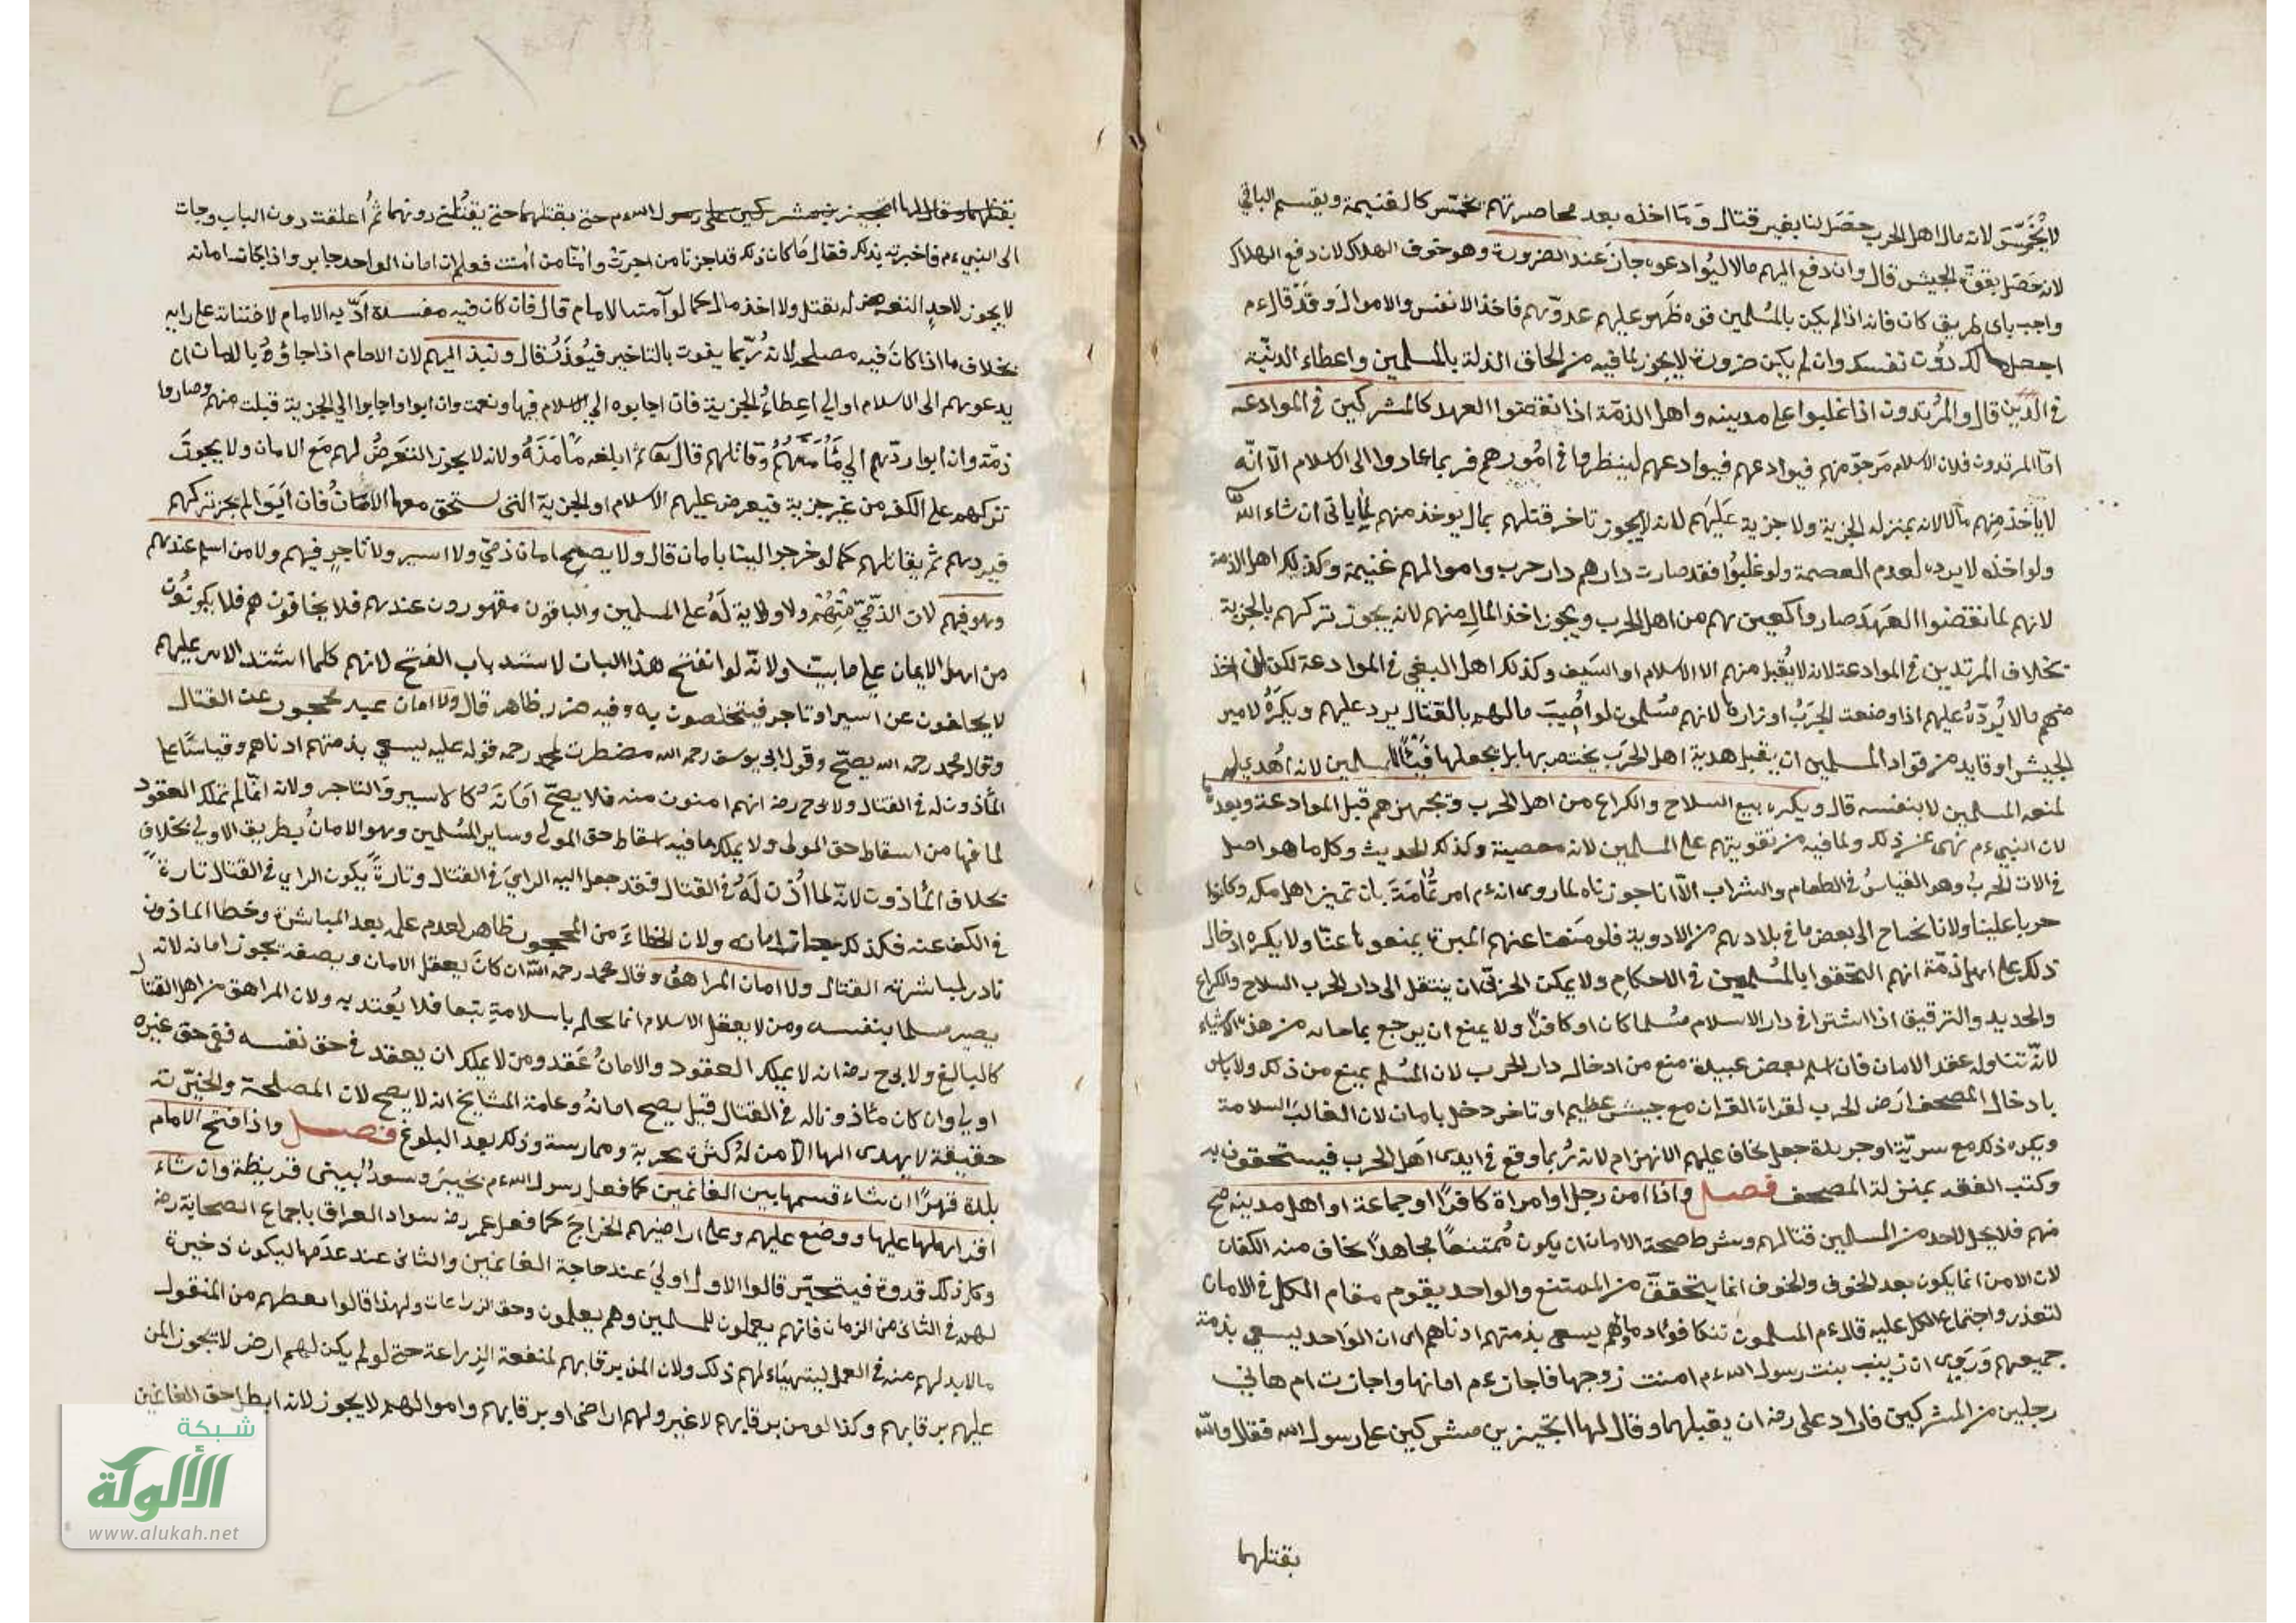 لا يُخَمَّسُ لانه مال اهل الحرب حَصَل لنا بغير قتال وَمَا اخذه بعد محاصرتهم يخمّس كالغنيمة ويقسم الباقي
لانه حَصَل بقوّة الجيش قال وان دفع اليهم مالا ليُوادعوه جازَ عند الضرورة وهو خوف الهلاك لان دفع الهلاك
واجب باى طريق كان فانه اذا لم يكن بالمُسلمين قوه ظَهر عليهم عدوّهم فاخذ الانفس والاموالَ وقَدْ قال ءم
اجعل مالك دوُن نفسك وان لم يكن ضرورة لا يجوز لما فيه من الحاق الذلة بالمسلمين واعطاء الدنيّة
في الدين قال والمُرتدون اذا غلبوا على مدينه واهل الذمّة اذا نقضوا العهد كالمشركين في الموادعه
امّا المرتدون فلان الاسلام مَرجوّ منهم فيوادعهم لينظروا في امُورهم فربما عادوا الى الاسلام الّا انّه
لا ياخذ مِنهم مالا لانه بمنزله الجزية ولا جزية عَليَهم لانه لا يجوز تاخر قتلهم بمال يوخذ منهم لما ياتى ان شاء الله
ولو اخذه لا يرده لعدم العصمة ولو غلبوُا فقد صارت دارهم دار حرب واموالهم غنيمة وكذلك اهل الذمة
لانهم لما نقضوا العهَدَ صاروا كغيرهم من اهل الحرب ويجوز اخذ المالِ منهم لانه يجوز تركهم بالجزية
بخلاف المرتدين في الموادعة لانه لا يُقبل منهم الا الاسلام او السَيف وكذلك اهل البغي في الموادعة لكن اخذ
منهم مالا يُردّهُ عليهم اذا وضعت الحَربُ اوزارها لانهم مسُلمون لو اُصيبَ مالهم بالقتال يرد عليهم ويكرَهُ لامير
الجيش او قايد من قواد المسلمين ان يقبل هدية اهل الحَرَب يختص بها بل يجعلها فَيْئًا للمسلمين لانه اُهدي له
لمنعه المسلمين لا بنفسه قال ويكره بيع السلاح والكراع من اهل الحرب وتجهيزهم قبل الموادعة وبعدها
لان النبي ءم نهى عن ذلك ولما فيه من تقويتهم على المسلمين لانه معصية وكذلك الحديث وكل ما هو اصل
في الات الحَربُ وهو القياسُ في الطعام والشراب الّا انا جوزناه لما روى انه ءم امر ثُمامَةَ بان تميز اهل مكه وكانوا
حربا علينا ولانا نحتاج الى بعض ما في بلادهم من الادوية فلو مَنعنا عنهم الميرة يمنعونها عنّا ولا يكره ادخال
ذلك على اهل الذمّة انهم التحقوا بالمُسلمين في الاحكامِ ولا يمكن الحربيّ ان ينتقل الى دار الحرب السلاح والكراع
والحديد والرقيق اذا اشتراه في دار الاسلام مسُلما كان او كافرًا ولا يمنع ان يرجع بما جاء به من هذه الاشياء
لانّه تناوله عقد الامان فان اسلم بعض عبيدهِ منع من ادخاله دار الحرب لان المُسْلم يمنع من ذلك ولا باس
بادخال المصحف ارَض الحرب لقراة القران مع جيش عظيم او تاجر دخل بامان لان الغالبَ السلامة
ويكره ذلك مع سريّة او جريدة خيل يخاف عليهم الانهزام لانه رُبما وقع في ايدى اهَل الحَرب فيستخفون به
وكتب الفقه بمنزلة المصحف فصل واذا امن رجل او امراة كافرًا او جماعة او اهل مدينه صح
منهم فلا يحل لاحد من المسلمين قتالهم وشرط صحة الامان ان يكون مُمتنعًا مجاهدًا يخاف منه الكفار
لان الامن انما يكون بعد الخوف والخوف انما يتحقق من الممتنع والواحد يقوم مقام الكل في الامان
لتعذر اجتماع الكل عليه قال ءم المسلمون تتكافؤا دماؤهم يسعى بذمتهم ادناهم اى ان الوَاحد يسعي بذمة
جميعهم وَرَوى ان زينب بنت رسول الله ءم امنت زوجها فاجاز ءم امانها واجازت ام هاني
رجلين من المشركين فاراد علي رضه ان يقتلهما وقال لها اتجيزين مشركين على رسول الله فقال والله
يقتلهما
يقتلهما وقال لها اتجيزين مشركين على رسول الله ءم حتى يقتلهما حتى يقتُلنى دونهما ثُم اغلقت دون الباب وجات
الى النبي ءم فاخبرته بذلك فقال مَا كان ذلك قد اجزنا من اجرتْ وامنّا من امنت فعلم ان امان الواحد جايز واذا كان امانه
لا يجوز لاحدٍ التعرض له بقتل ولا اخذ مال كما لو آمنه الامام قال فان كان فيه مفسدة اَدّبه الامام لافتئاته على رايه
بخلاف ما اذا كان فيه مصلحه لانه رُبّما يفوت بالتاخير فيُعْذَرُ قال ونبذ اليهم لان الامام اذا جاؤهُ بالامان ان
يدعوهم الى الاسلام او الي اعِطاءُ الجزية فان اجابوه الي الاسلام فبها ونعمت وان ابوا واجابوا الي الجزية قبلت منهم وصاروا
ذمّة وان ابوا ردّهم الي مَأْمَنِهِمْ وقَاتلهم قال تعا ثم ابلغه مَأْمَنَهُ ولانه لا يجوز التعَرضُ لهم مَع الامان ولا يجوزَ
تركهم على الكفر من غير جزية فيعرض عليهم الاسلام او الجزية التى تستحق معها الامَانُ فان ابَوَا لم يجز تركهم
فيردهم ثم يقاتلهم كما لو خرجوا الينا بامان قال ولا يصح امان ذميّ ولا اسير ولا تاجرٍ فيهم ولا من اسلم عندهم
وهو فيهم لان الذّمّيّ مُتِهُمٌ ولا ولاية لَهُ على المسلمين والباقون مقهورون عندهم فلا يخافون هم فلا يكونُون
من اهل الايمان على ما بينّا ولانّه لو انفتح هذا الباب لانسد باب الفتح لانهم كلما اشتد الامر عليهم
لا يخلون عن اسير او تاجر فيتخلصون به وفيه ضرر ظاهر قال ولا امان عبد محجور عن القتال
وقال محمد رحمه الله يصحّ وقول ابي يوسف رحمه الله مضطرب لمحمد رحمه قوله عليه يسعي بذمتهم ادناهم وقياسًا على
المأذون له في القتال ولابي ح رضه انهم امنون منه فلا يصحّ اَمَانَهُ كالاسير وَالتاجر ولانه انمّا لم يملك العقود
لما فيها من اسقاط حق المولى ولا يملك ما فيه اسقاط حق المولى وساير المُسلمين وهو الامانُ بطريق الاولي بخلافِ
بخلاف المأذون لانّه لما اُذن لَهُ في القتال فقد جعل اليه الرايَ في القتال وتارةً يكون الراي في القتال تارة
في الكف عنه فكذلك امانه ولان الخطاءَ من المحجور ظاهر لعدم علمه بعد المباشرة وخطا الماذون
نادر لمباشرته القتال ولا امان المراهق وقال محمد رحمه الله ان كانَ يعقل الامان ويصفه يجوز امانه لانه
يصير مسلما بنفسه ومن لا يعقل الاسلام انما يحكم باسلامهِ تبعا فلا يُعتد به ولان المراهق من اهل القتال
كالبالغ ولابي ح رضه انه لا يملك العقود والامانُ عَقد ومن لا يملك ان يعقد في حق نفسه ففى حق غيره
اولي وان كان مأذونا له في القتال قيل يصح امانهُ وعامة المشايخ انه لا يصح لان المصلحة والخيرّية
حقيقة لا يهدى اليها الاّ من لهُ كثرة تجربة وممارسة وذلك بعد البلوغ فصل واذا فتح الامام
بلدة قهرًا ان شاء قسمها بين الغانمين كما فعل رسول الله ءم بخيبرَ وان شاء
اقر اهلها عليها ووضع عليهم وعلى اراضيهم الخراجَ كما فعل عمر رضه سواد العراق باجماع الصحابة رضه
وكل ذلك قدوة فيتخيّر قالوا الاول اولَي عند حاجة الغانمين والثانى عند عدَمها ليكون ذخيرة
لهم في الثانى من الزمان فانهم يعملون للمسلمين وهم يعلمون وجوه الزراعات ولهذا قالوا يعطهم من المنقول
مالا بد لهم منه في العمل ليتهيّاء لهم ذلك ولان المن برقابهم لمنفعة الزراعة حتى لو لم يكن لهم ارض لا يجوز المن
عليهم برقابهم وكذا لو من برقابهم لا غير ولهم اراضى او برقابهم واموالهم لا يجوز لانه ابطل حق الغانمين
شبكة
الألوكة
www.alukah.net